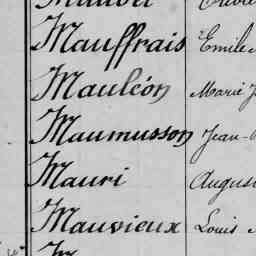 Mauffrais Emile
Mauléon Marie J
Maumusson Jean-
Mauri August
Mauvieux Louis